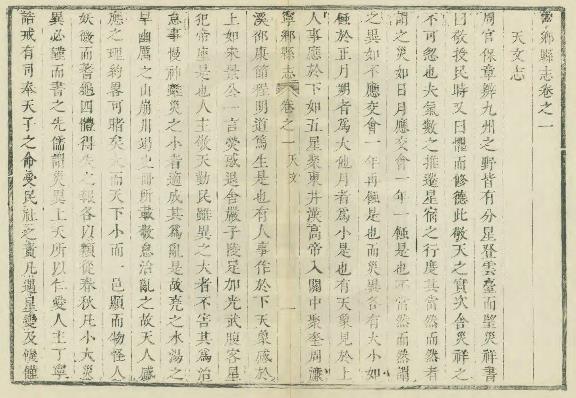 寧鄉縣志卷之一
天文志
周官保章辨九州之野皆有分星登雲臺而望災祥書
曰敬授民時又曰懼而修德此敬天之實次舍災祥之
不可忽也夫氣數之推遷星宿之行度其當然而然者
謂之災如日月應交會一年一蝕是也不當然而然謂
之異如不應交會一年再蝕是也而災異各有大小如
蝕於正月朔者為大他月者為小是也有天象見於上
人事應於下如五星聚東井漢高帝入關中聚奎周濂
寧鄉縣志 卷之一 天文 一
溪御康節程明道為生是也有人事作於下天象感於
上如宋景公一言熒惑退舍嚴子陵足加光武腹客星
犯帝座是也人主敬天勤民雖異之大者不害其為治
怠事慢神雖災之小者適成其為亂是故堯之水湯之
旱幽厲之山崩川竭之冊所載敬怠治亂之故天人感
應之理約畧可睹矣夫而天下小而一邑顯而物怪人
妖微而蓍龜四體得失之報各以類從春秋凡小大災
異必謹而書之先儒謂災異上天所以仁愛人主丁寧
誥戒有司奉天子之命受民社之責凡遇星變及候懂